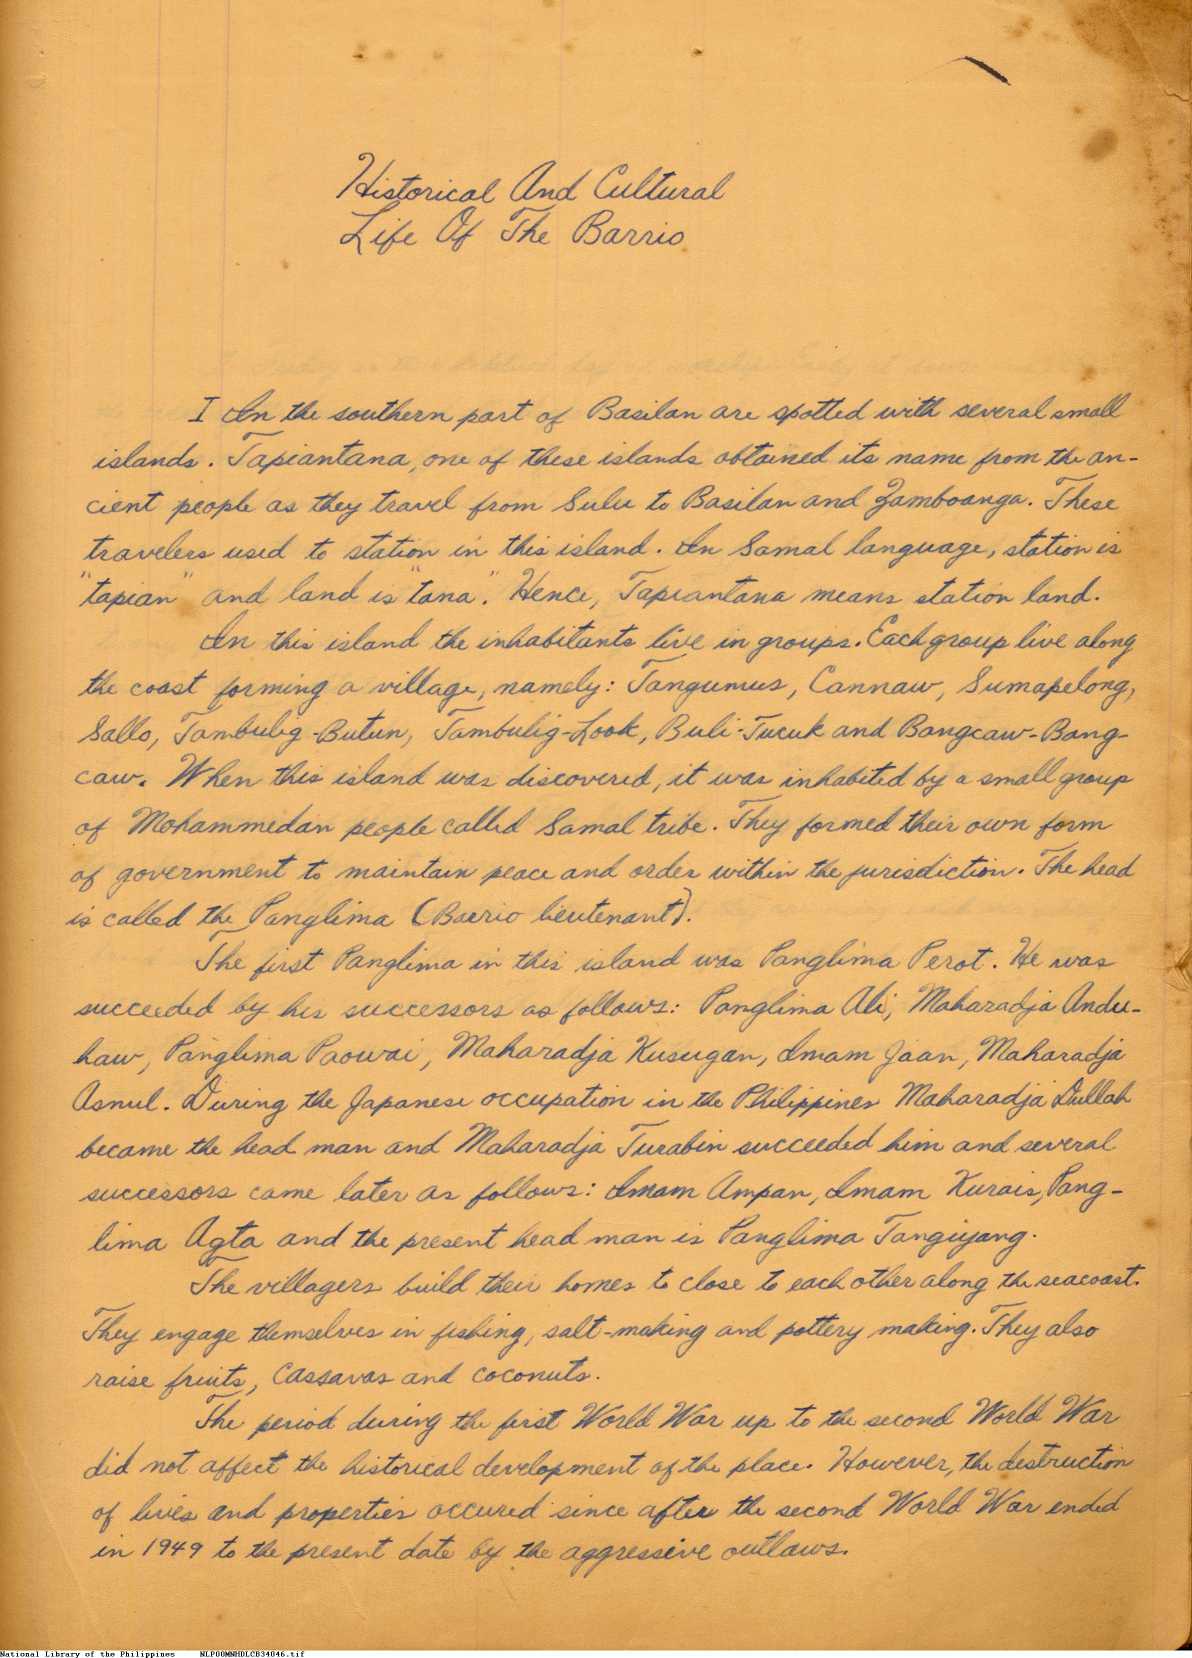 Historical And Cultural
Life Of The Barrio
I In the southern part of Basilan are spotted with several small
islands. Tapiantana, one of these islands obtained its name from the an-
cient people as they travel from Sulu to Basilan and Zamboanga. These
travelers used to station in this island. In Samal language, station is
"tapian" and land is "tana". Hence, Tapiantana means station land.
In this island the inhabitants live in groups. Each group live along
the coast forming a village, namely: Tangumus, Cannaw, Sumapelong,
Sallo, Tambulig-Butun, Tambulig-Look, Buli-Tucuk and Bangcaw-Bang-
caw. When this island was discovered, it was inhabited by a small group
of Mohammedan people called Samal tribe. They formed their own form
of government to maintain peace and order within the jurisdiction. The head
is called the Panglima (Baerio lieutenant).
The first Panglima in this island was Panglima Perot. He was
succeeded by his successors as follows: Panglima Ali, Maharadja Andu-
haw, Panglima Paowai, Maharadja Kusugan, Imam Jaan, Maharadja
Asnul. During the Japanese occupation in the Philippines Maharadja Dullah
became the head man and Maharadja Turabin succeeded him and several
successors came later as follows: Imam Ampan, Imam Kurais, Pang-
lima Agta and the present head man is Panglima Tangiyang.
The villagers build their homes to close to each other along the seacoast.
They engage themselves in fishing, salt-making and pottery making. They also
raise fruits, cassavas and coconuts.
The period during the first World War up to the second World War
did not affect the historical development of the place. However, the destruction
of lives and properties occured since after the second World War ended
in 1949 to the present date by the aggressive outlaws.
National Library of the Philippines NLP00MNHDLCB34046.tif